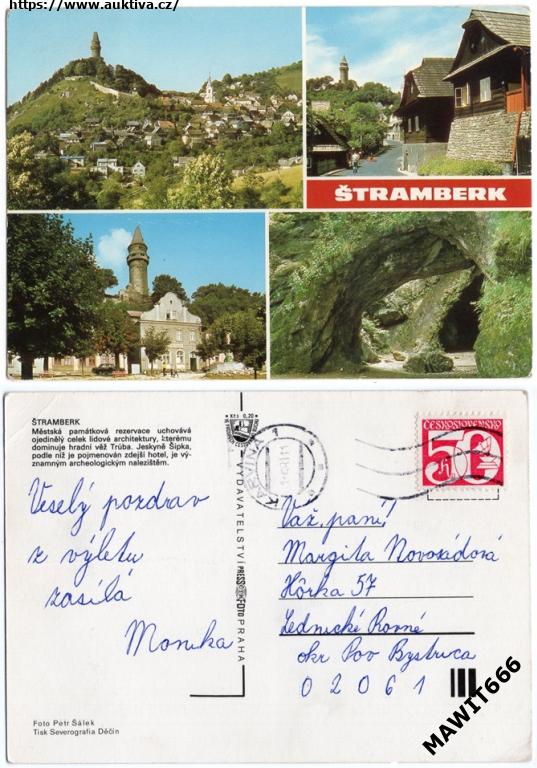 https://www.auktiva.cz/
ŠTRAMBERK
ŠTRAMBERK
Městská památková rezervace uchovává
ojedinělý celek lidové architektury, kterému
dominuje hradní věž Trúba. Jeskyně Šipka,
podle níž je pojmenován zdejší hotel, je vý-
znamným archeologickým nalezištěm.
Veselý pozdrav
z výletu
zasílá
Monika
Foto Petr Šálek
Tisk Severografia Děčín
Kčs 0,20
VYDAVATELSTVÍ PRESSFOTO PRAHA
KARVINÁ 1
ČESKOSLOVENSKO
50 h
Váž. paní!
Margita Novosádová
Hôrka 57
Lednické Rovné
okr Pov Bystrica
02061
MAWIT666